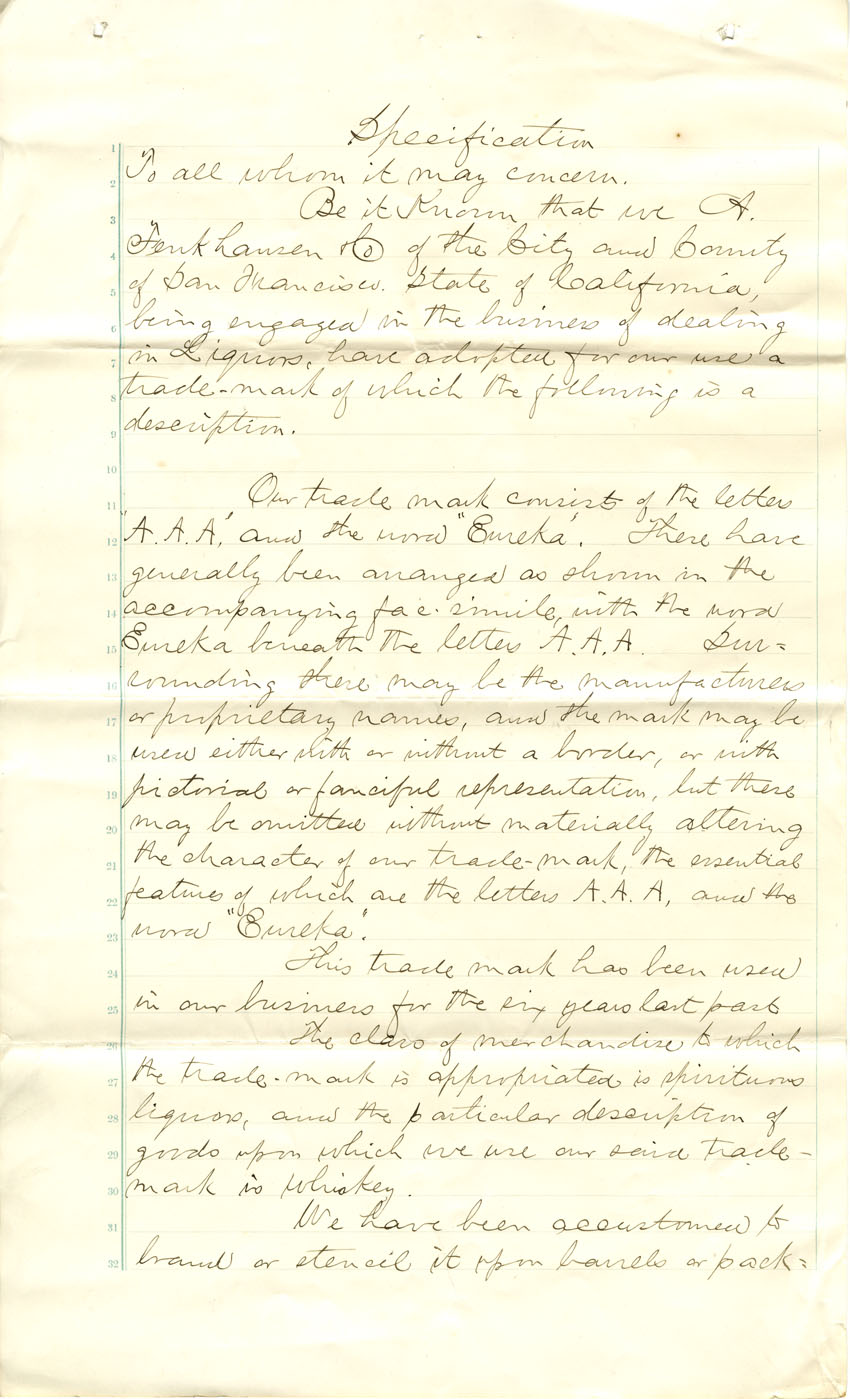 Specification
1
To all whom it may concern.
2
Be it Known that we A.
3
Fenkhausen & Co of the City and County
4
of San Francisco. State of California,
5
being engaged in the business of dealing
6
in Liquors, have adopted for our use a
7
trade-mark of which the following is a
8
description.
9
10
Our trade mark consists of the letters
11
"A.A.A", and the word "Eureka". These have
12
generally been arranged as shown in the
13
accompanying fac-simile, with the word
14
Eureka beneath the letters A.A.A. Sur=
15
rounding these may be the manufacturers
16
or proprietary names, and the mark may be
17
used either with or without a border, or with
18
pictorial or fanciful representation, but these
19
may be omitted without materially altering
20
the character of our trade-mark, the essential
21
features of which are the letters A.A.A, and the
22
word "Eureka".
23
This trade mark has been used
24
in our business for the six years last past
25
The class of merchandise to which
26
the trade-mark is appropriated is spirituous
27
liquors, and the particular description of
28
goods upon which we use our said trade-
29
mark is whiskey.
30
We have been accustomed to
31
brand or stencil it upon barrels or pack=
32